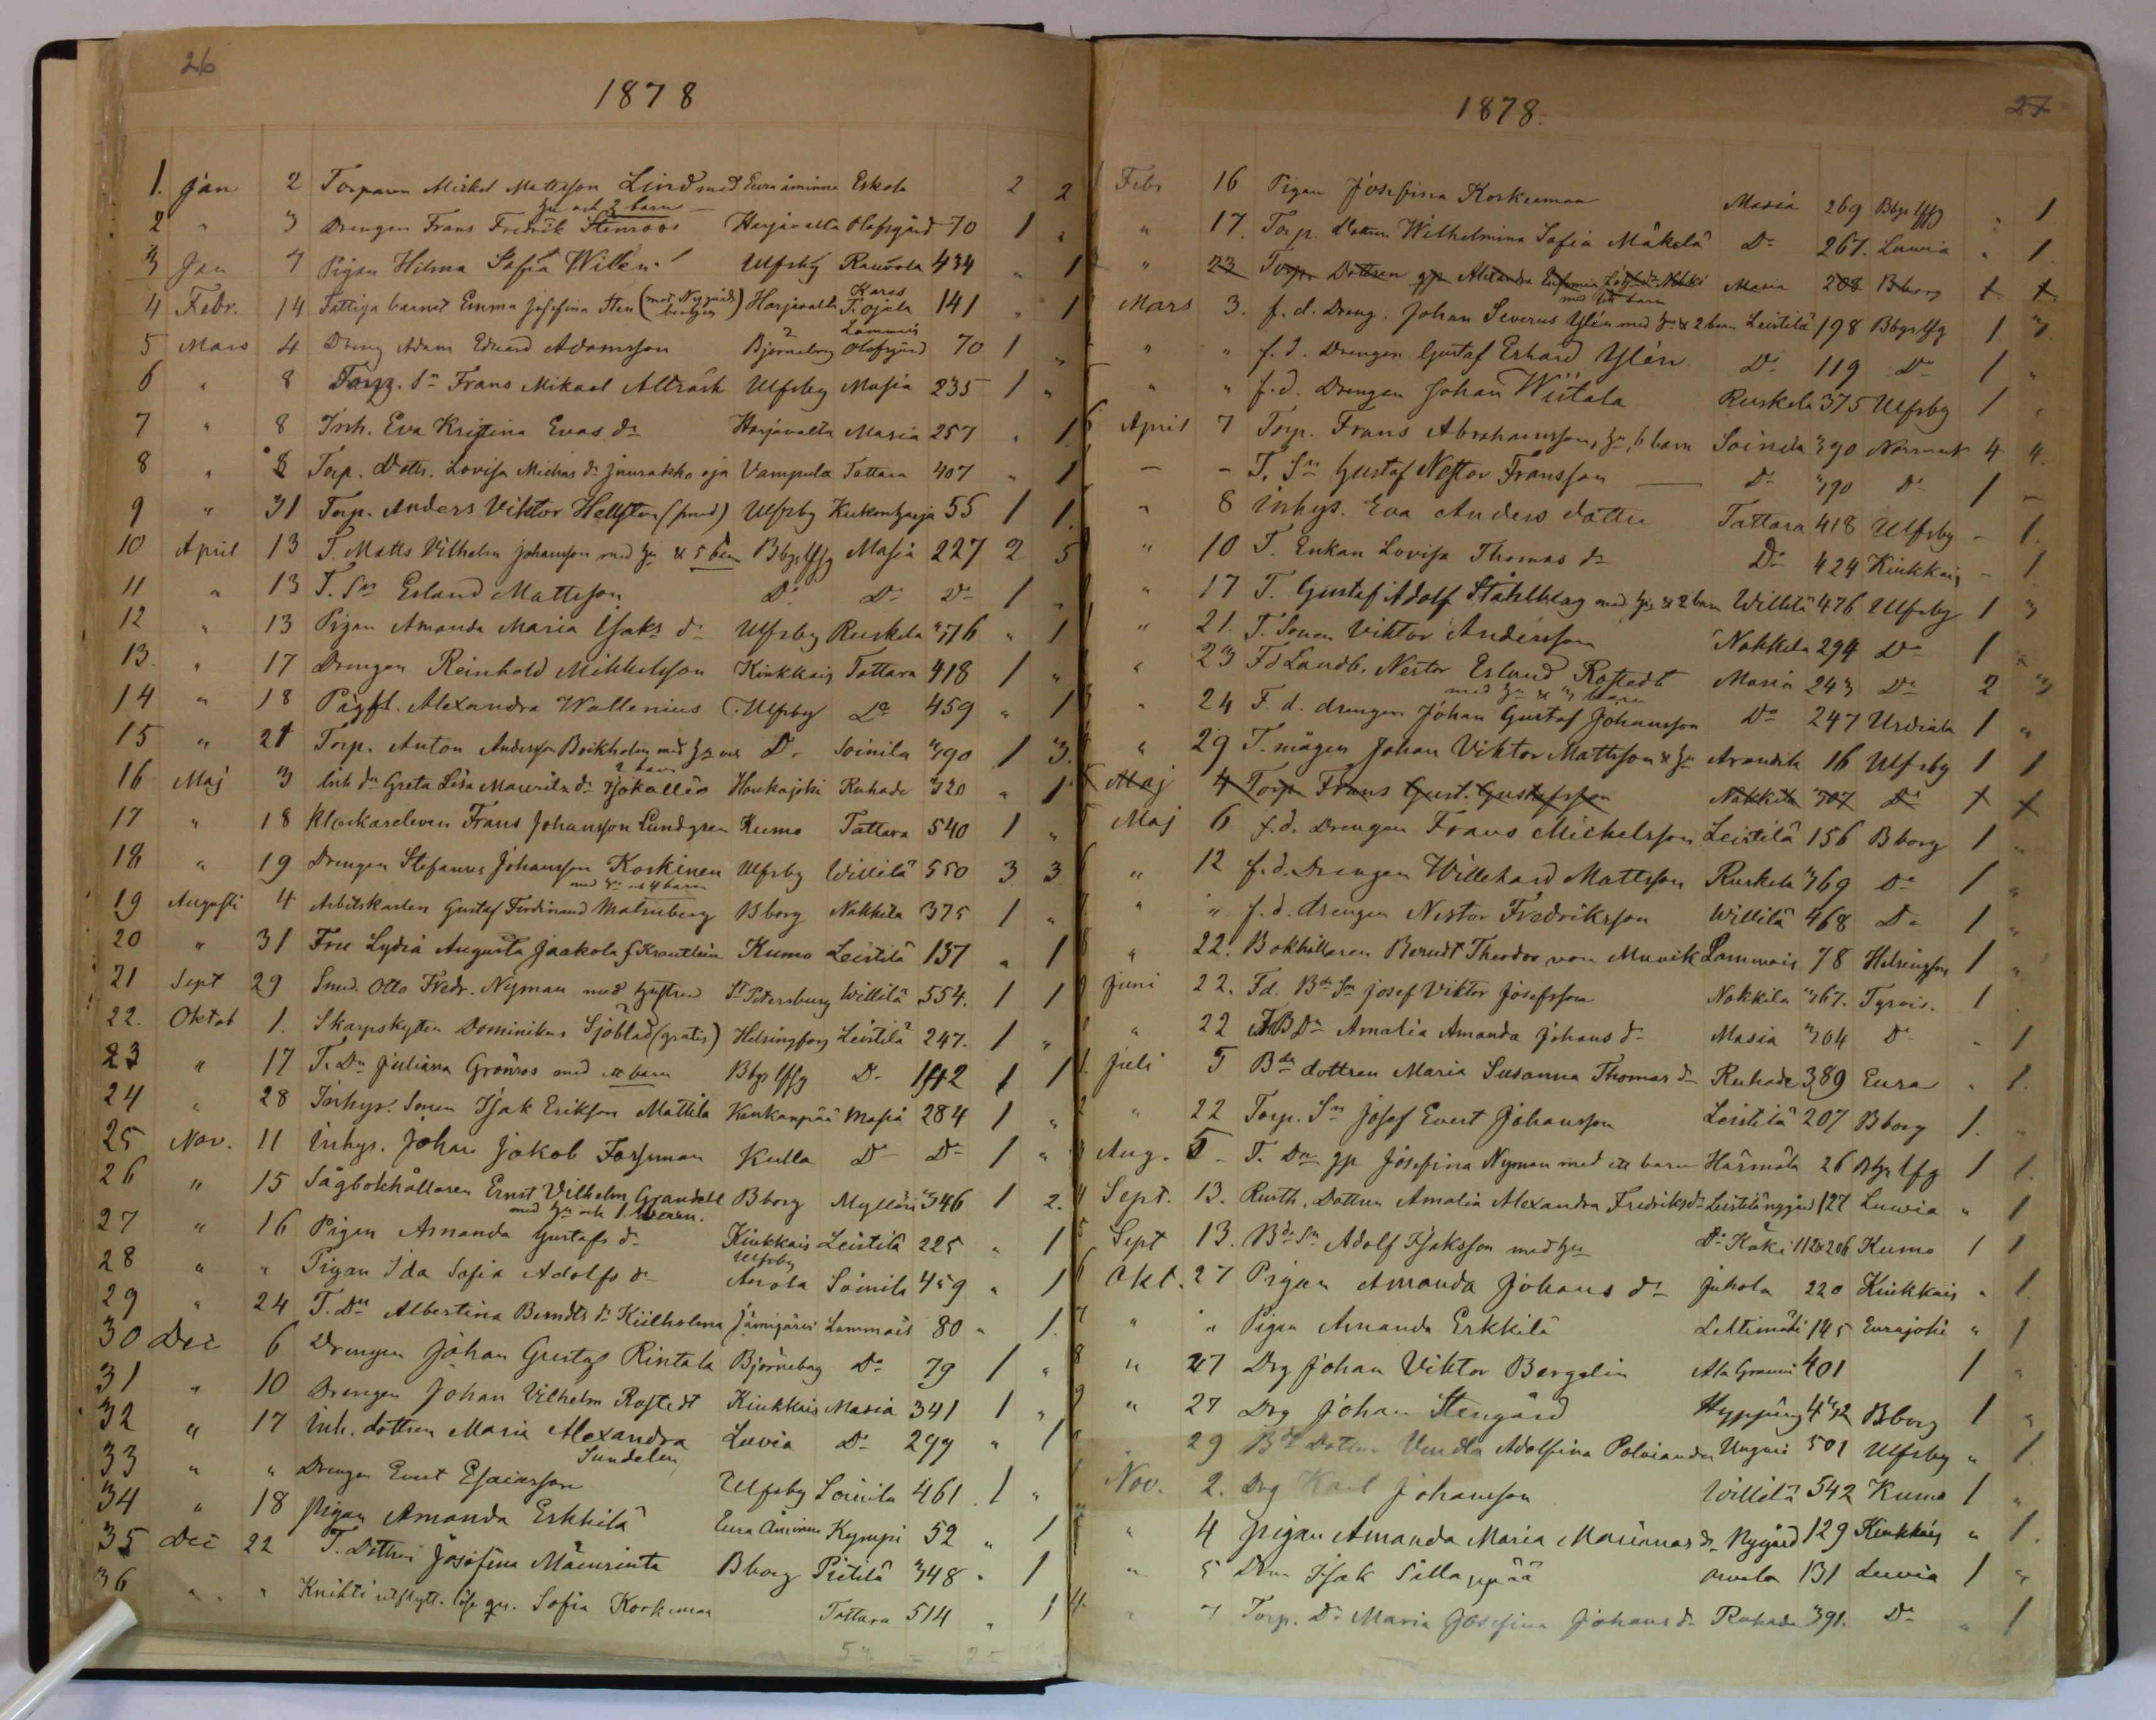 26
1878
1. Jan 2 Torparen Mickel Mattsson Lind med Euraåminne Eskola 2 2
hu och 2 barn
2 " 3 Drengen Frans Fredrik Stenroos Harjavalta Olofsgård 70 1 "
3 Jan 7 Pigan Hilma Sofia Willén Ulfsby Rauvola 434 " 1
4 Febr. 14 Fattiga barnet Emma Josefina Sten (med Nygårds) Harjavalta Karas T. ojala 141 " 1
5 Mars 4 Dreng Adam Eduard Adamsson Björneborg Lammais Olofsgård 70 1 "
6 " 8 Torp. Sn Frans Mikael Allträsk Ulfsby Masia 235 1 "
7 " 8 Inh. Eva Kristina Evas dr Harjavalta Masia 257 " 1
8 " 8 Torp. Dottr. Lovisa Michas dr Juurakko oja Vampula Tattara 407 " 1
9 " 31 Torp. Anders Viktor Hellsten Ulfsby Kukonharja 55 1 1.
10 April 13 T. Matts Vilhelm Johansson med hu & 5 barn Bbgs lffg Masia 227 2 5
11 " 13 T. Sn Erland Mattsson Do Do Do 1 "
12 " 13 Pigan Amanda Maria Isaks dr Ulfsby Ruskela 376 " 1
13. " 17 Drengen Reinhold Mikkelsson Kiukkais Tattara 418 1 "
14 " 18 Alexandra Wallenius Ulfsby Do 459 " 1
15 " 21 Torp. Anton Andersson Boikholm med hu och Do Soinila 390 1 3.
2 barn
16 Maj 3 Inh dr Greta Lisa Mauritz dr Isokallio Honkajoki Ruhade 320 " 1
17 " 18 Klockareleven Frans Johansson Lundgren Kumo Tattara 540 1 "
18 " 19 Drengen Stefanus Johansson Koskinen Ulfsby Willilä 550 3. 3.
med hu och 4 barn
19 Augusti 4 Arbetskarlen Gustaf Ferdinand Malmberg Bborg Nakkila 375 1 "
20 " 31 Fru Lydia Augusta Jaakola f Krautlein Kumo Leistilä 137 " 1
21 Sept 29 Smed. Otto Fredr. Nyman med hustru St Petersburg Willilä 554. 1 1
22. Oktob 1. Skarpskytten Dominikus Sjöblad (gratis) Helsingfors Leistilä 247. 1 "
23 " 17 T. Dr Juliana Grönroos med ett barn Bbgs lffg Do 142 1 1
24 " 28 Inhys. Sonen Isak Erikson Mattila Kankanpää Masia 284 1 "
25 Nov. 11 Inhys. Johan Jakob Forsman Kulla Do Do 1 "
26 " 15 Sågbokhållaren Ernst Vilhelm Grandell Bborg Mylläri 346 1 2.
med hu och 1 barn.
27 " 16 Pigan Amanda Gustafs dr Kiukkais Leistilä 225 " 1
28 " " Pigan Ida Sofia Adolfs dr Ulfsby Anola Soinila 459 " 1
29 " 24 T. Dr Albertina Berndts dr Kiilholma Jämijärvi Lammais 80 " 1.
30 Dec 6 Drengen Johan Gustaf Rintala Björneborg Do 79 1 "
31 " 10 Drengen Johan Vilhelm Rostedt Kiukkais Masia 341 1 "
32 " 17 Inh. dottren Maria Alexandra Luvia Do 299 " 1
Sundelin
33 " " Drengen Evert Esaiasson Ulfsby Soinila 461. 1 "
34 " 18 Pigan Amanda Erkkilä Eura Åminne Kympi 52 " 1
35 Dec 22 T. Dottren Josefina Mäenrinta Bborg Pirilä 348 " 1
36 " " Knihti Sofia Korkeman Tattara 514 " 1
27
1878.
Febr 16 Pigan Josefina Korkeeman Masia 269 Bbgs lffg " 1
" 17. Torp. dottren Wilhelmina Sofia Mäkelä Do 267. Luvia " 1
" 23 Torp. Dottren Alexandra Eufemia Nakki Masia 208 Bborg
med ett barn
Mars 3. f. d. Dreng. Johan Severus Ylén med hu & 2 barn Leistilä 198 Bbgs lffg 1 3.
" " f. d. Drengen Gustaf Erhard Ylén Do 119 Do 1 "
" " f. d. Drengen Johan Wiitala Ruskela 375 Ulfsby 1 "
April 7 Torp. Frans Abrahamsson, hu, 6 barn Soinila 390 Norrmark 4 4.
— - T. Sn Gustaf Nestor Fransson — Do 390 Do 1 —
" 8 Inhys. Eva Anders dotter Tattara 418 Ulfsby - 1.
" 10 T. Enkan Lovisa Thomas dr Do 424 Kiukkais - 1
" 17 T. Gustaf Adolf Ståhlberg med hu & 2 barn Willilä 476 Ulfsby 1 3
" 21. T. Sonen Viktor Andersson Nakkila 294 Do 1 "
" 23 Fd Landb. Nestor Erland Rostedt Masia 243 Do 2 3
med hu & 3 barn
" 24 F. d. drengen Johan Gustaf Johansson Do 247 Urdiala 1 "
" 29 T. mågen Johan Viktor Mattsson & hu Arandila 16 Ulfsby 1 1
Maj 4 Torp Frans Gust. Gustafsson Nakkila 307 Do
Maj 6 f. d. Drengen Frans Michelsson Leistilä 156 Bborg 1 "
" 12 f. d. Drengen Willehard Mattsson Ruskela 369 Do 1 "
" " f. d. drengen Nestor Fredriksson Willilä 468 Do 1 "
" 22. Bokhållaren Berndt Theodor von Muvik Lammais 78 Helsingfors 1 "
Juni 22. Fd. Bde Sn Josef Viktor Josefsson Nakkila 367. Tyrvis. 1.
" 22 FBDr Amalia Amanda Johans dr Masia 304 Do " 1
Juli 5 Bde dottren Maria Susanna Thomas dr Ruhade 389 Eura " 1.
" 22 Torp. Sn Josef Evert Johansson Leistilä 207 Bborg 1. "
Aug. 5 T. Dr gp Josefina Nyman med ett barn Härmälä 26 Bbgs lfg 1 1.
Sept. 13. Rusth. Dottren Amalia Alexandra Fredriks dr Leistilä nygård 127 Luvia " 1
Sept 13. Bde Sn Adolf Isaksson med hu Do Käki 112&206 Kumo 1 1
Okt. 27 Pigan Amanda Johans dr Juhola 220 Kiukkais " 1.
" " Pigan Amanda Erkkilä Lehtimäki 145 Eurajoki " 1
" 27 Drg Johan Viktor Bergelin Ala Granni 401 1 "
" 27 Drg Johan Stengård Hyppäng 432 Bborg 1 "
" 29 Bde Dottren Vendla Adolfina Polviander Ungni 501 Ulfsby " 1.
Nov. 2. Drg Karl Johansson Willilä 542 Kumo 1 "
" 4 Pigan Amanda Maria Marianas dr Nygård 129 Kiukkais " 1.
" 5 Drn Isak Sillanpää Arvela 131 Luvia 1 "
" 7 Torp. Dr Maria Josefina Johans dr Ruhade 391. Do " 1